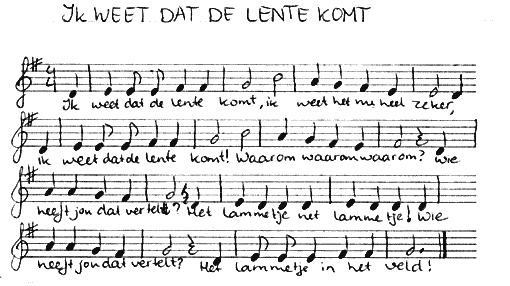 IK WEET DAT DE LENTE KOMT
Ik weet dat de lente komt, ik weet het nu heel zeker,
ik weet dat de lente komt! Waarom waarom waarom? Wie
heeft jou dat vertelt? Het lammetje het lammetje! Wie
heeft jou dat vertelt? Het lammetje in het veld!